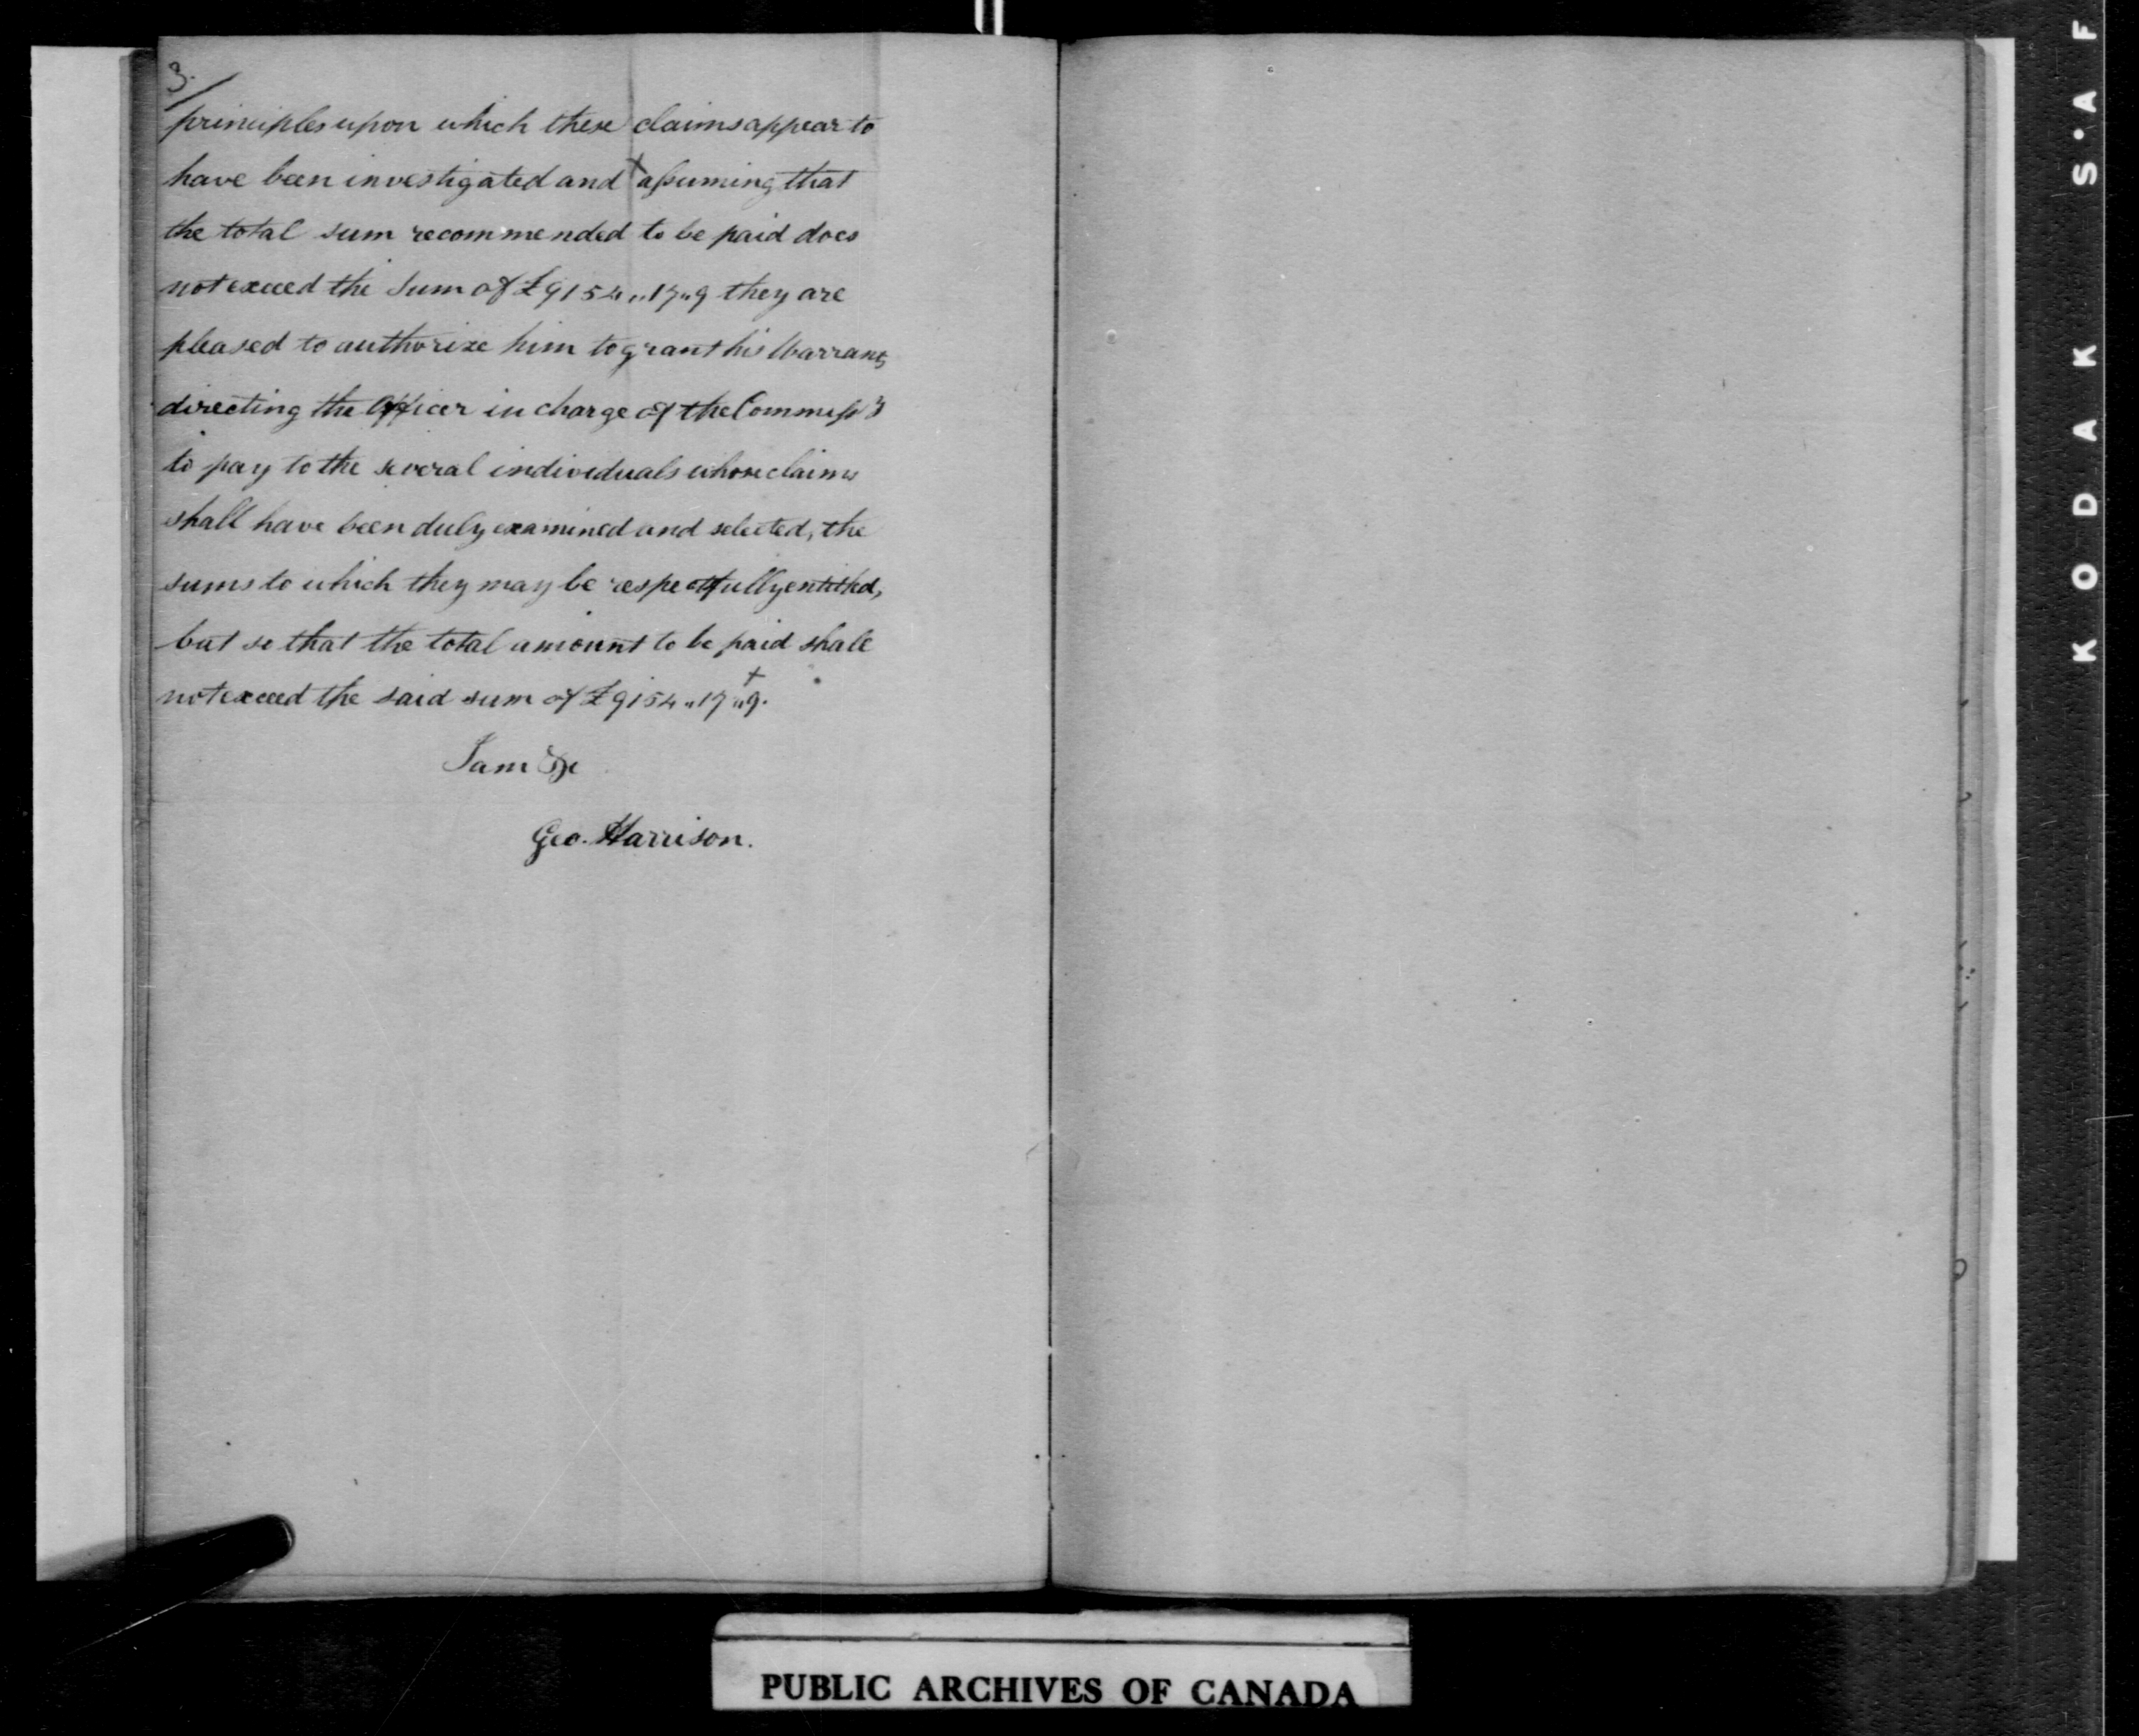 3.
principles upon which these claims appear to
have been investigated and + assuming that
the total sum recommended to be paid does
not exceed the Sum of £9154,,17,,9 they are
pleased to authorize him to grant his Warrant,
directing the Officer in charge of the Commissy
to pay to the several individuals whose claims
shall have been duly examined and selected, the
sums to which they may be respectfully entitled,
but so that the total amount to be paid shall
not exceed the said sum of £9154,,17,,9. +
I am &c
Geo. Harrison.
PUBLIC ARCHIVES OF CANADA
KODAK S•AF